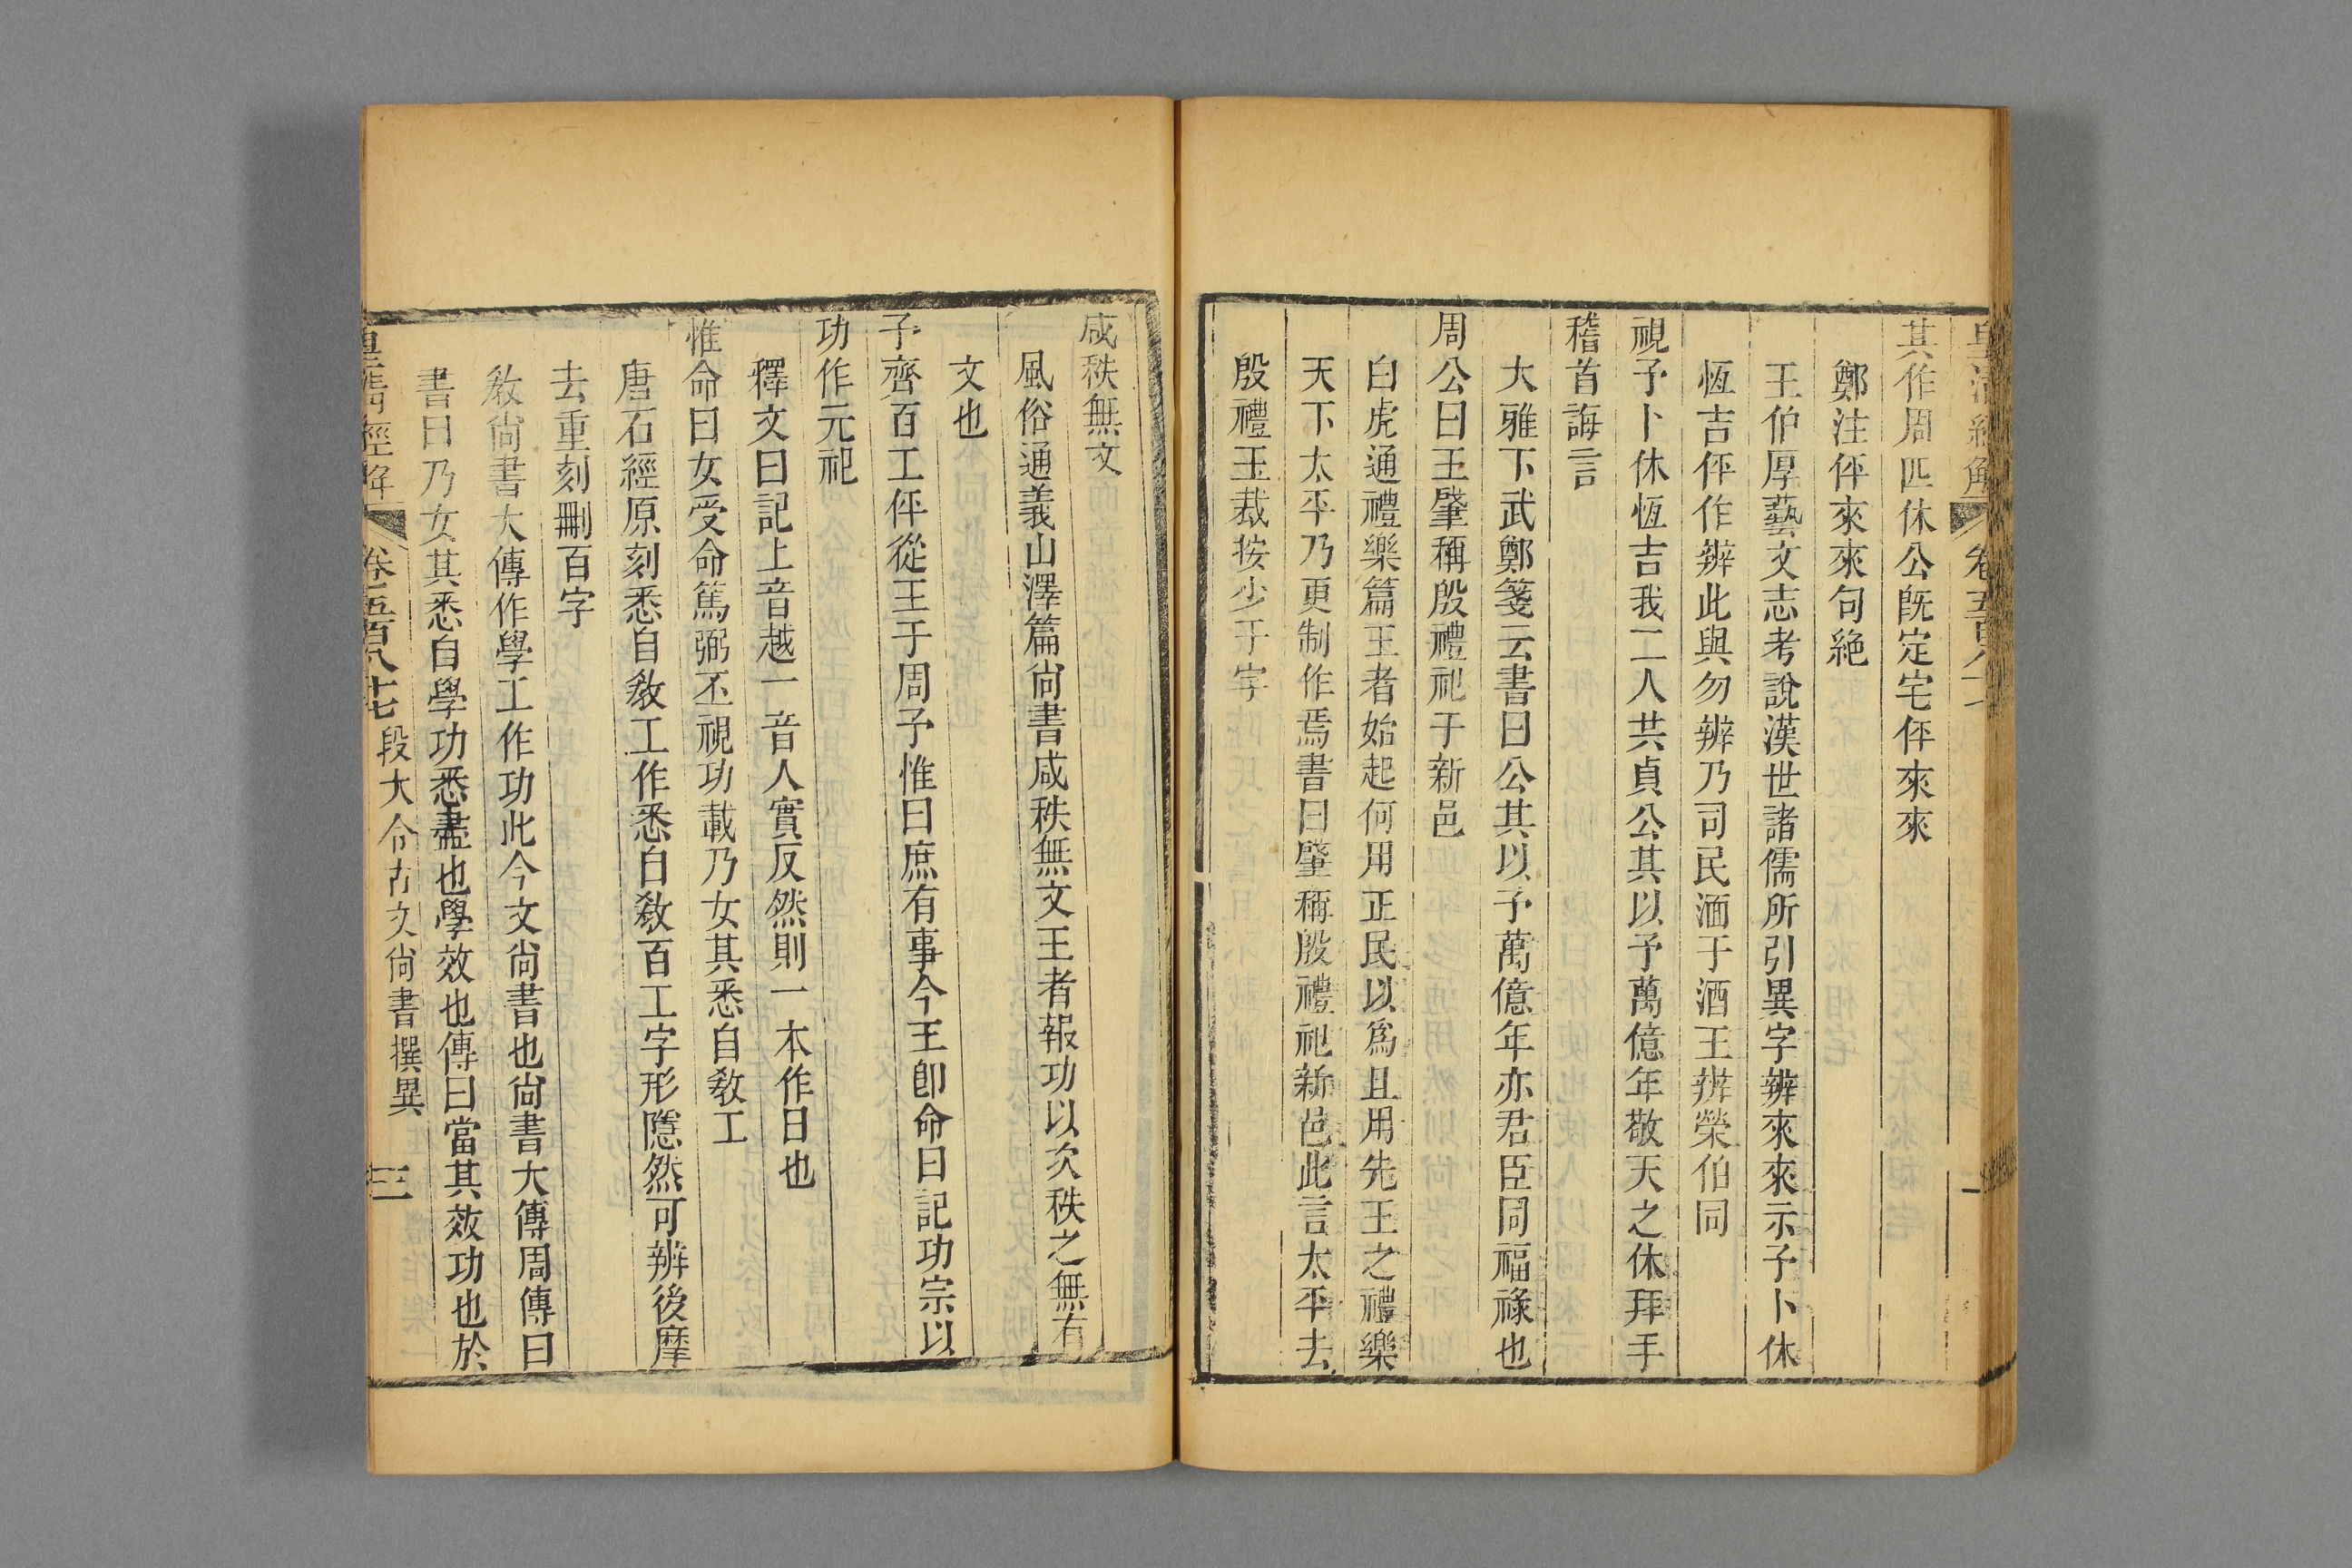 其作周匹休公既定宅伻來來
鄭注伻來來句絶
王伯厚藝文志考說漢世諸儒所引異字辨來來示予卜休
恆吉伻作辨此與勿辨乃司民湎于酒王辨榮伯同
視予卜休恆吉我二人共貞公其以予萬億年敬天之休拜手
稽首誨言
大雅下武鄭箋云書曰公其以予萬億年亦君臣同福祿也
周公曰王肇稱殷禮祀于新邑
白虎通禮樂篇王者始起何用正民以爲且用先王之禮樂
天下太平乃更制作焉書曰肇稱殷禮祀新邑此言太平去
殷禮玉裁按少于字
咸秩無文
風俗通義山澤篇尙書咸秩無文王者報功以次秩之無有
文也
予齊百工伻從王于周予惟曰庶有事今王卽命曰記功宗以
功作元祀
釋文曰記上音越一音人實反然則一本作日也
惟命曰女受命篤弼丕視功載乃女其悉自敎工
唐石經原刻悉自敎工作悉自敎百工字形隱然可辨後摩
去重刻刪百字
敎尙書大傳作學工作功此今文尙書也尙書大傳周傳曰
書曰乃女其悉自學功悉盡也學效也傳曰當其效功也於
皇淸經解 卷五百八十七 段大令古文尙書撰異 三